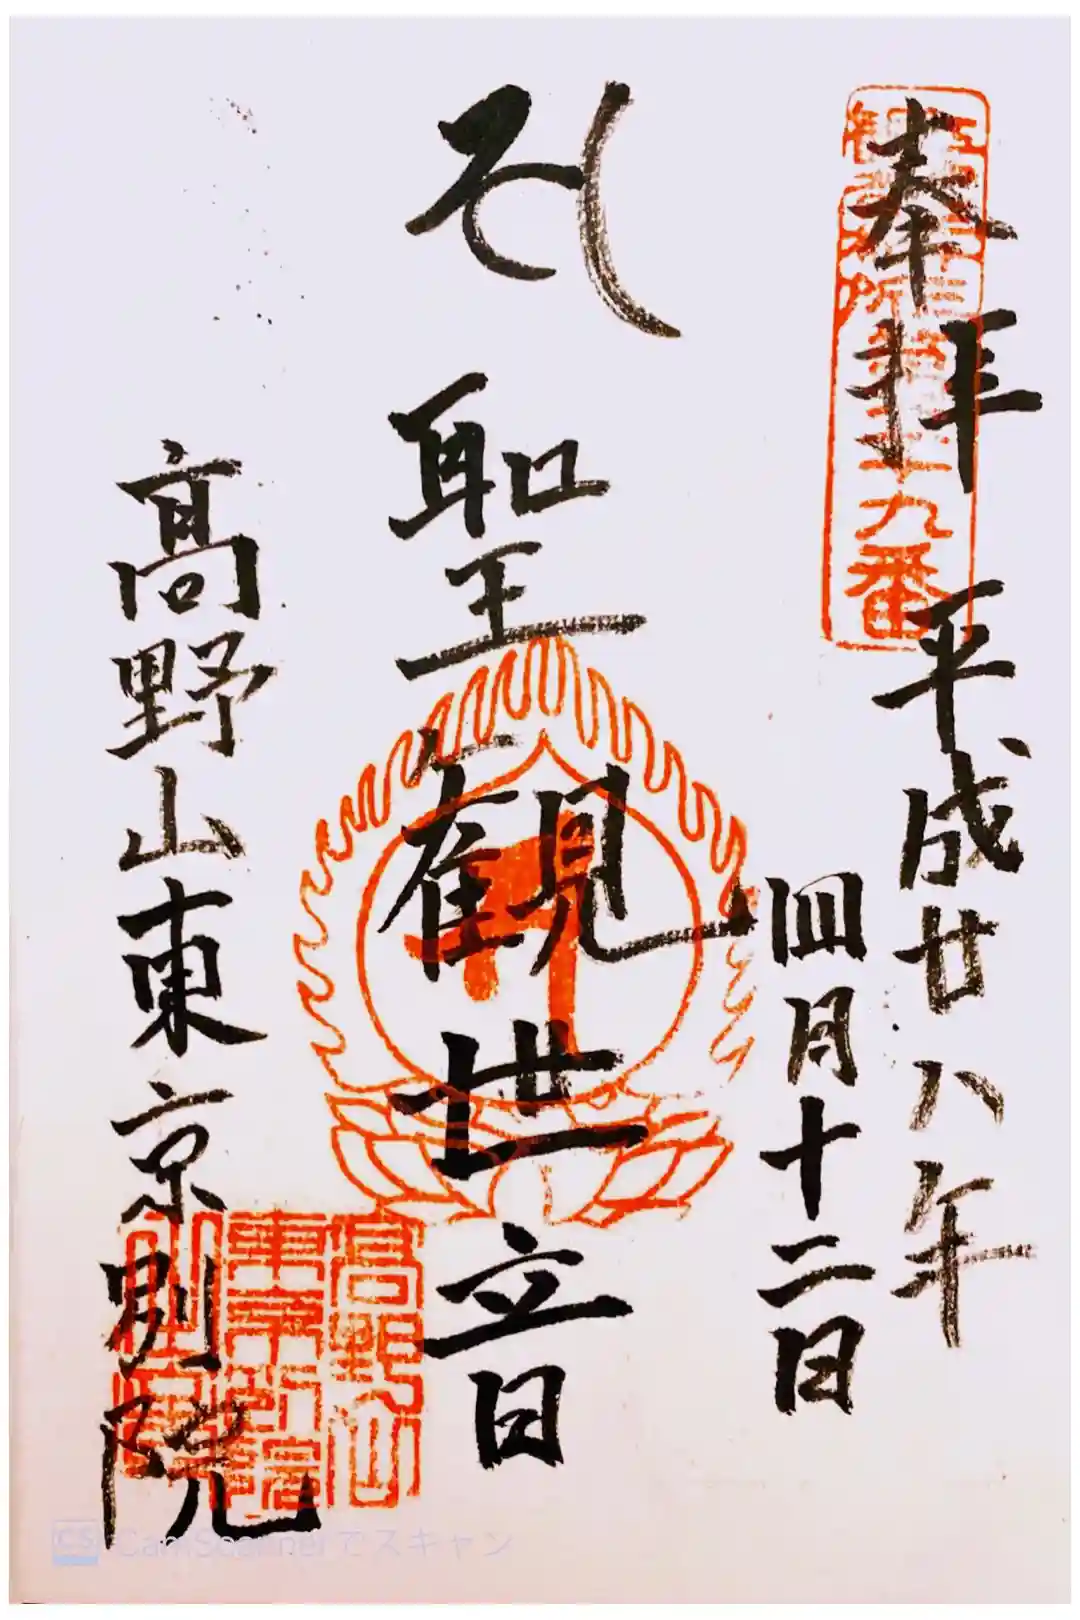 奉拝
平成廿八年
四月十二日
聖観世音
高野山東京別院
江戸三十三
観音札所
第二十九番
高野山
東京別院
CamScannerでスキャン